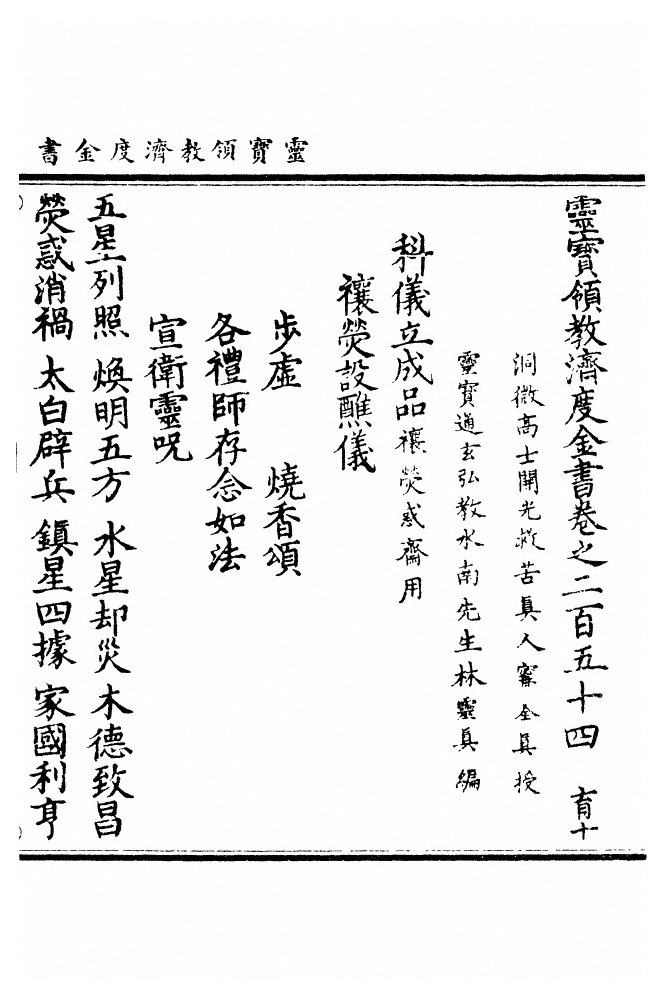 靈寶領教濟度金書
靈寶領教濟度金書卷之二百五十四 育十
洞微高士開光救苦真人甯全真授
靈寶通玄弘教水南先生林靈真編
科儀立成品禳熒惑齋用
禳熒設醮儀
步虛 燒香頌
各禮師存念如法
宣衛靈呪
五星列照 煥明五方 水星却災 木德致昌
熒惑消禍 太白辟兵 鎮星四據 家國利亨